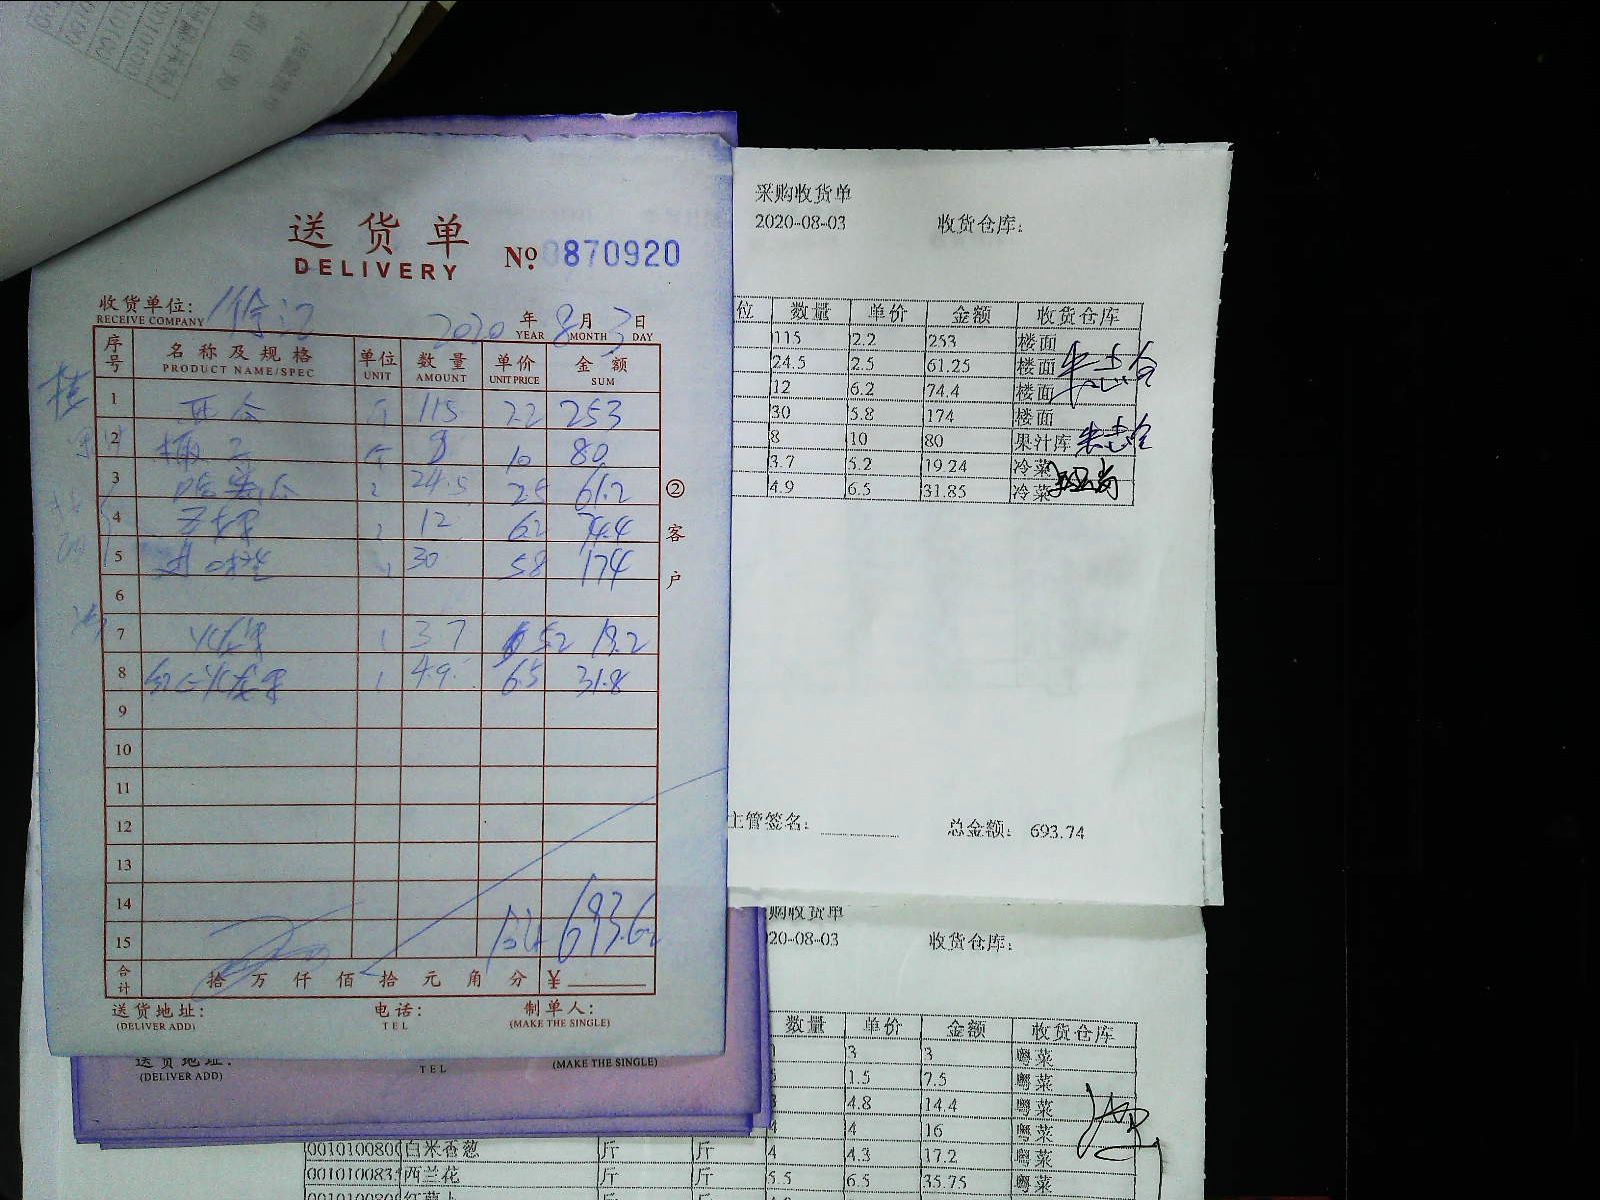 送货单
DELIVERY
№ 0870920
收货单位:
RECEIVE COMPANY
徐记
2020 年 8 月 3 日
YEAR MONTH DAY
序号 名称及规格 单位 数量 单价 金额
PRODUCT NAME/SPEC UNIT AMOUNT UNIT PRICE SUM
1 西瓜 个 115 22 253
2 个 8 10 80
3 哈密瓜 24.5 25 61.2
4 12 62 74.4
5 30 58 174
6
7 火龙果 3.7 52 19.2
8 红心火龙果 4.9 6.5 31.8
9
10
11
12
13
14
15 693.6
合计 拾 万 仟 佰 拾 元 角 分 ¥
② 客户
送货地址: 电话: 制单人:
(DELIVER ADD) TEL (MAKE THE SINGLE)
送货地址:
(DELIVER ADD) TEL (MAKE THE SINGLE)
采购收货单
2020-08-03 收货仓库:
位 数量 单价 金额 收货仓库
115 2.2 253 楼面
24.5 2.5 61.25 楼面
12 6.2 74.4 楼面
30 5.8 174 楼面
8 10 80 果汁库
3.7 5.2 19.24 冷菜
4.9 6.5 31.85 冷菜
主管签名: 总金额: 693.74
购收货单
20-08-03 收货仓库:
数量 单价 金额 收货仓库
3 3 粤菜
1.5 7.5 粤菜
4.8 14.4 粤菜
4 16 粤菜
白米香葱 斤 斤 4 4.3 17.2 粤菜
西兰花 斤 斤 5.5 6.5 35.75 粤菜